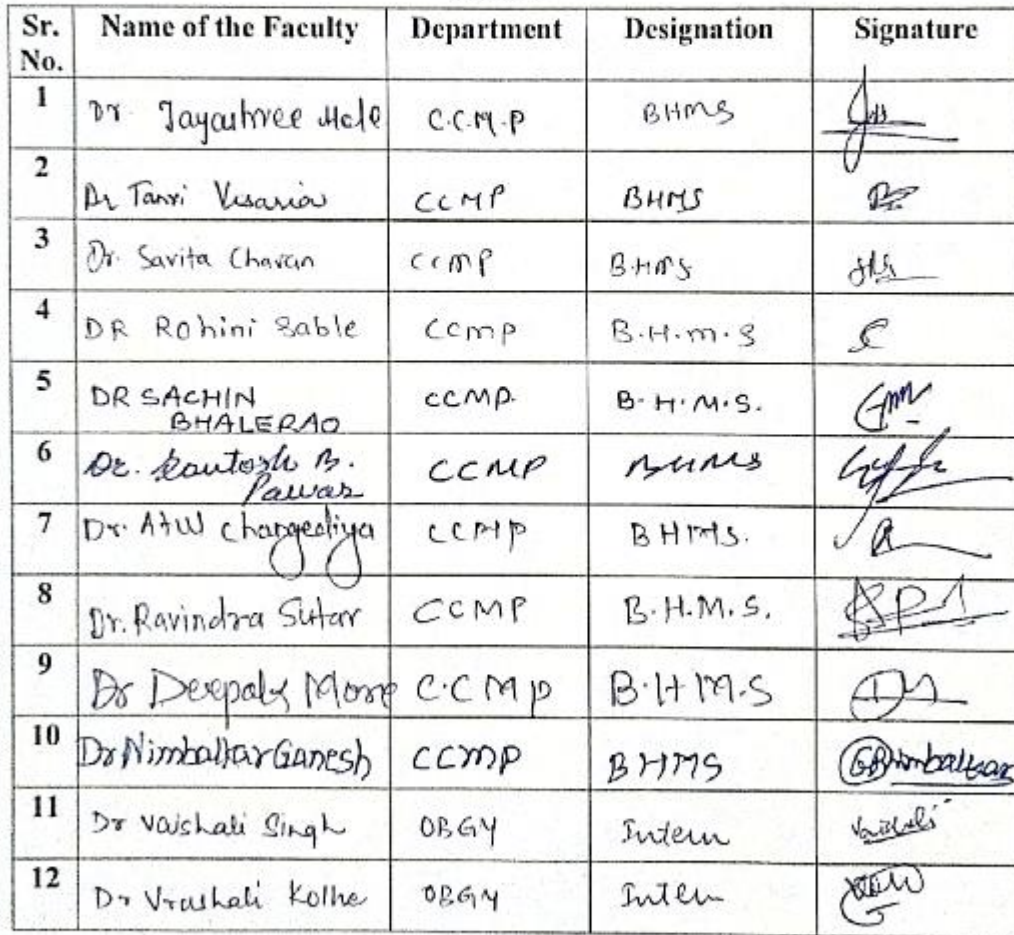 Sr. No. Name of the Faculty Department Designation Signature
1 Dr. Jayashree Male C.C.M.P BHMS
2 Dr Tanvi Visaria CCMP BHMS
3 Dr. Savita Chavan CCMP B.H.M.S
4 DR Rohini Sable CCMP B.H.M.S
5 DR SACHIN BHALERAO CCMP. B.H.M.S.
6 Dr. Santosh B. Pawar CCMP BHMS
7 Dr. Atul CCMP BHMS.
8 Dr. Ravindra Sutar CCMP B.H.M.S.
9 Dr Deepak More C.C.M.P B.H.M.S
10 Dr Nimbalkar Ganesh CCMP BHMS GBNimbalkar
11 Dr Vaishali Singh OBGY Intern Vaishali
12 Dr Vrushali Kolhe OBGY Intern